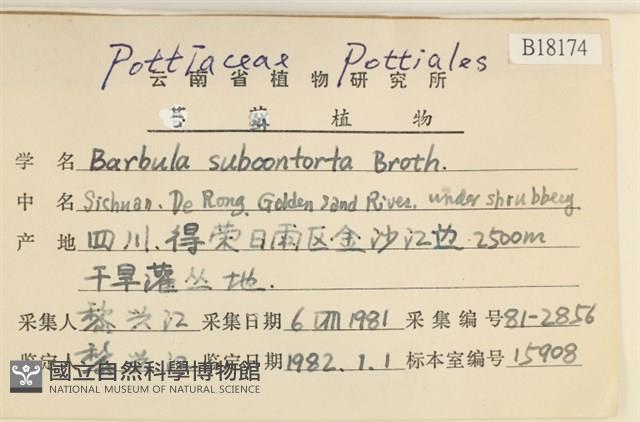 Pottiaceae Pottiales
B18174
云南省植物研究所
苔藓植物
学名 Barbula subcontorta Broth.
中名 Sichuan. De Rong. Golden sand River. under shrubbery
产地 四川.得荣日雨区金沙江边 2500m
干旱灌丛地.
采集人 黎兴江 采集日期 6 VIII 1981 采集编号 81-2856
鉴定人 黎兴江 鉴定日期 1982.1.1 标本室编号 15908
國立自然科學博物館
NATIONAL MUSEUM OF NATURAL SCIENCE